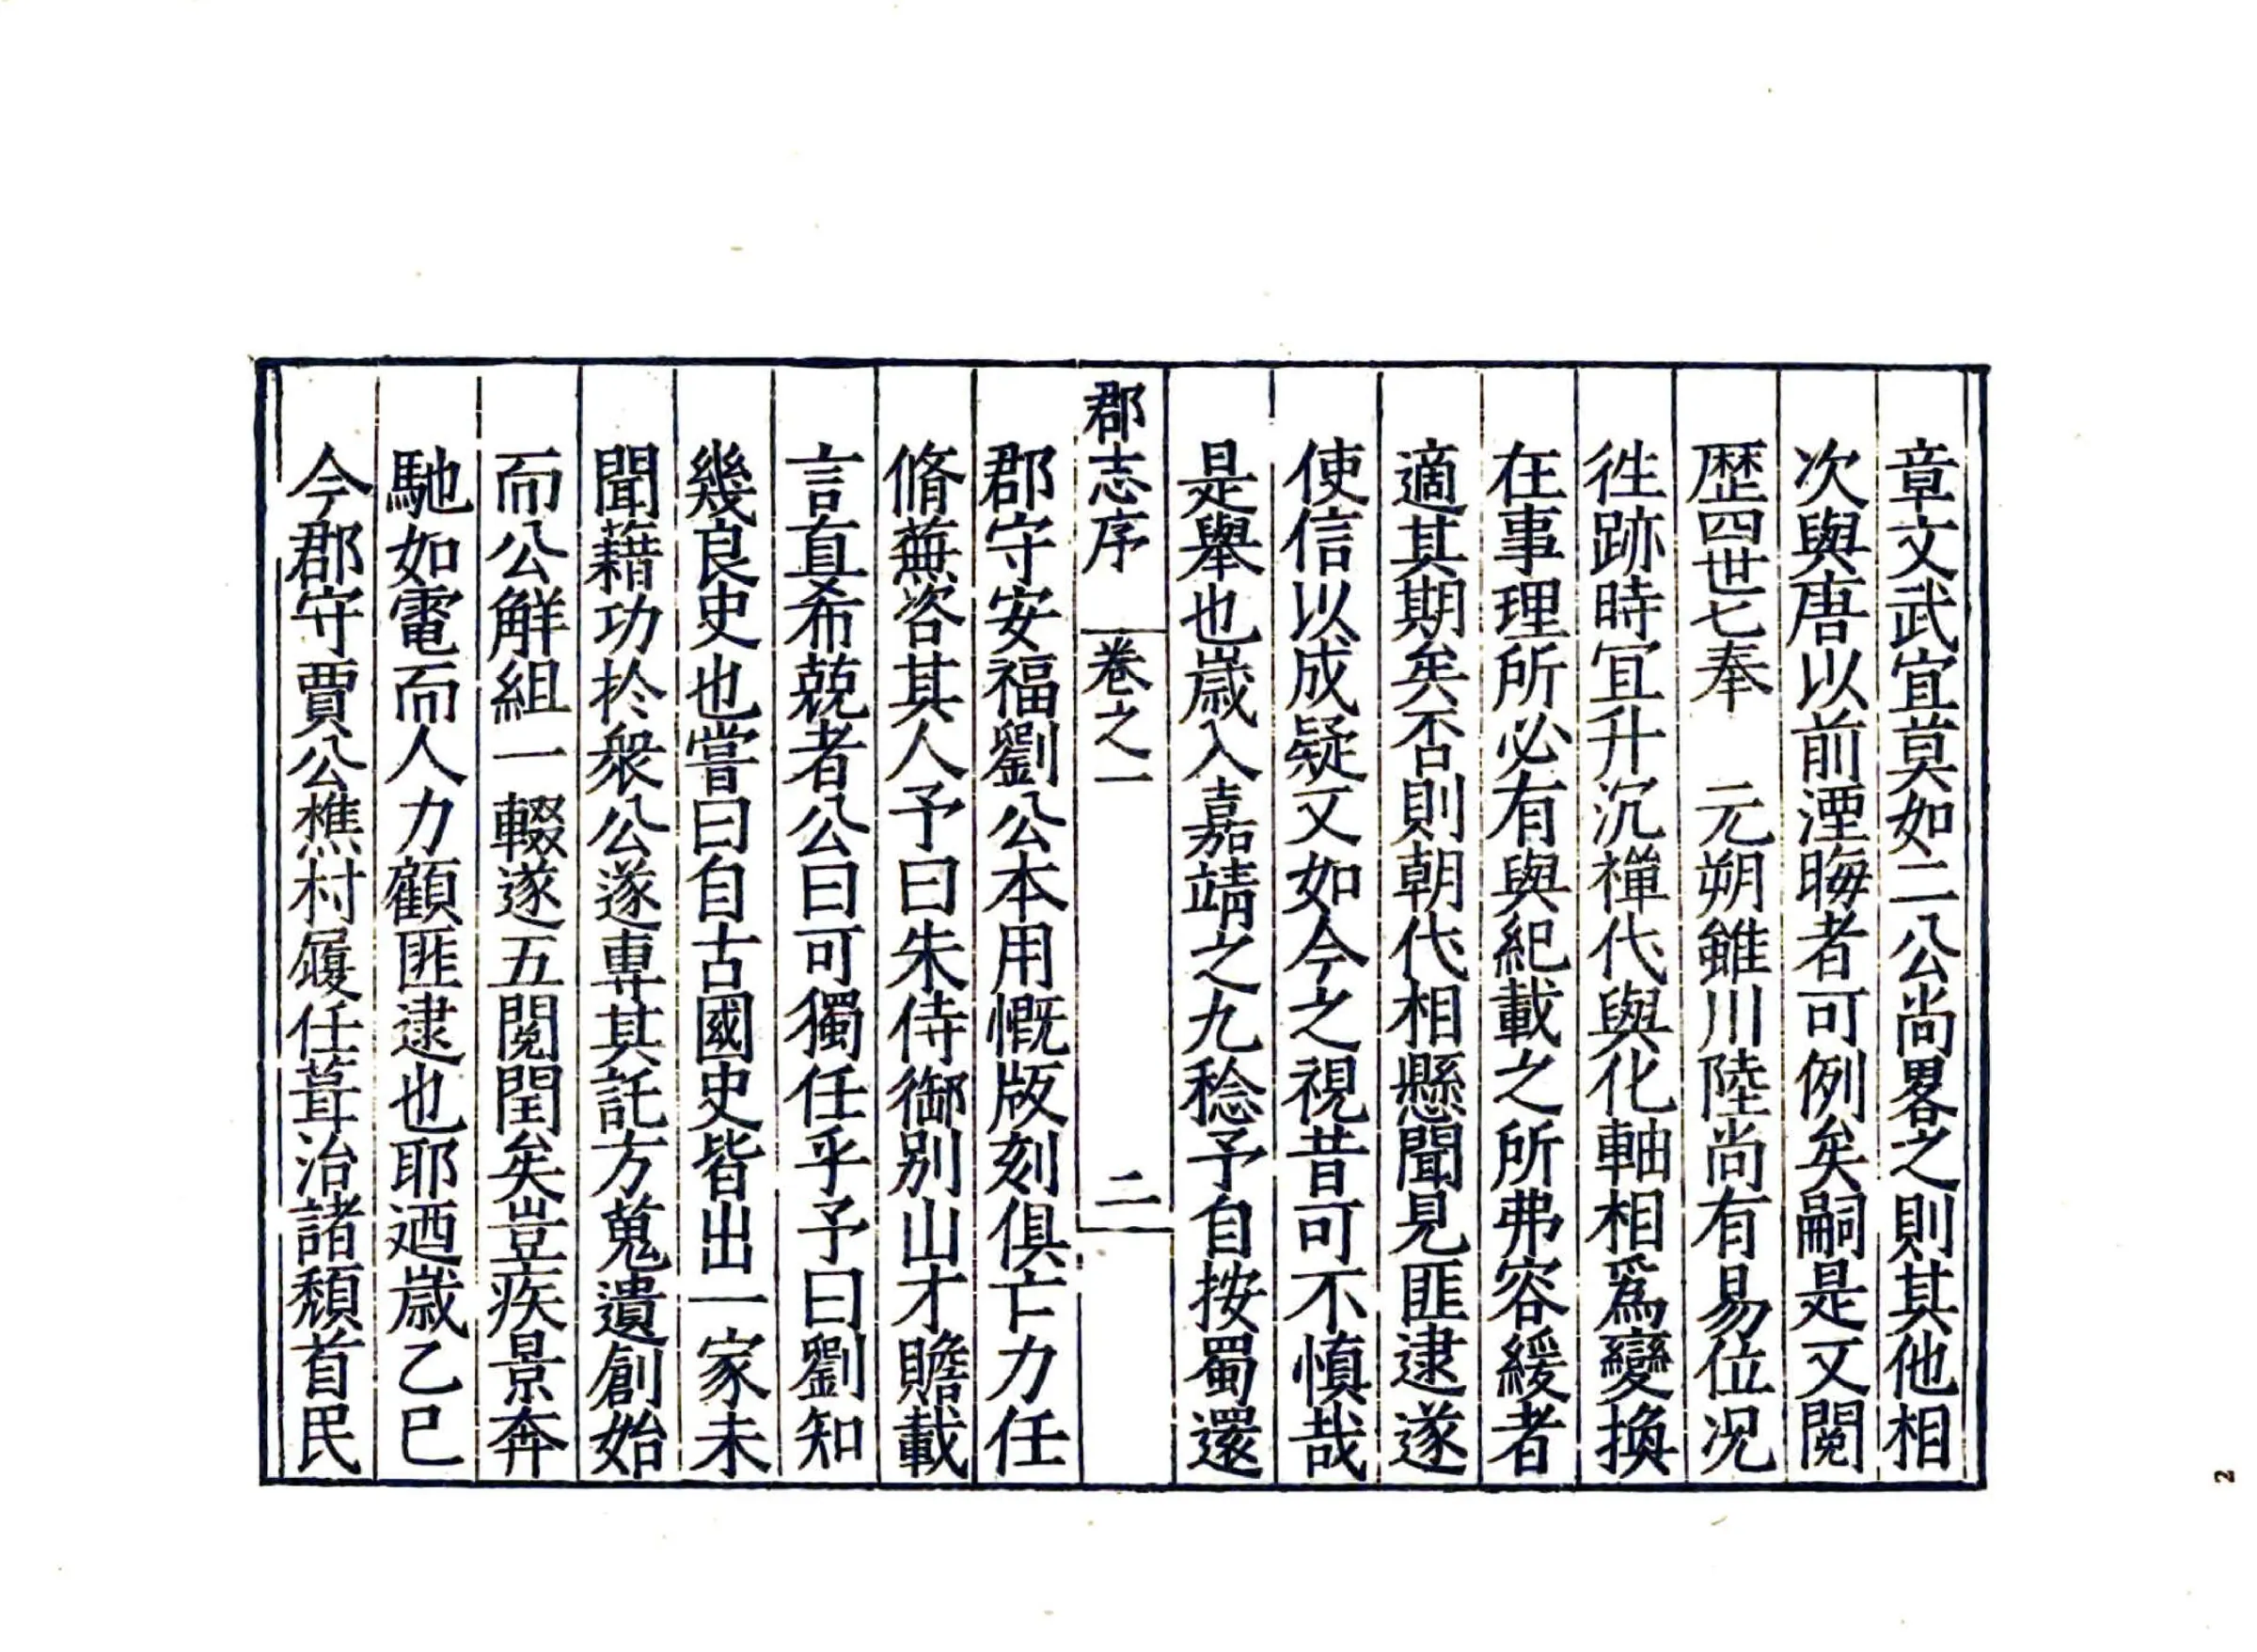 章文武宜莫如二公尚畧之則其他相
次與唐以前湮晦者可例矣嗣是又閱
歴四世七奉　元朔雖川陸尚有易位况
徃跡時冝升沉禪代與化軸相爲變換
在事理所必有與紀載之所弗容緩者
適其期矣否則朝代相懸聞見匪逮遂
使信以成疑又如今之視昔可不慎哉
是舉也嵗入嘉靖之九稔予自按蜀還
郡志序　卷之一　二
郡守安福劉公本用慨版刻俱亡力任
脩蕪咨其人予曰朱侍御别山才贍載
言直希兢者公曰可獨任乎予曰劉知
幾良史也嘗曰自古國史皆出一家未
聞藉功扵衆公遂專其託方蒐遺創始
而公觧組一輟遂五閱閏矣豈疾景奔
馳如電而人力顧匪逮也耶迺嵗乙巳
今郡守賈公樵村履任葺治諸頽首民
2